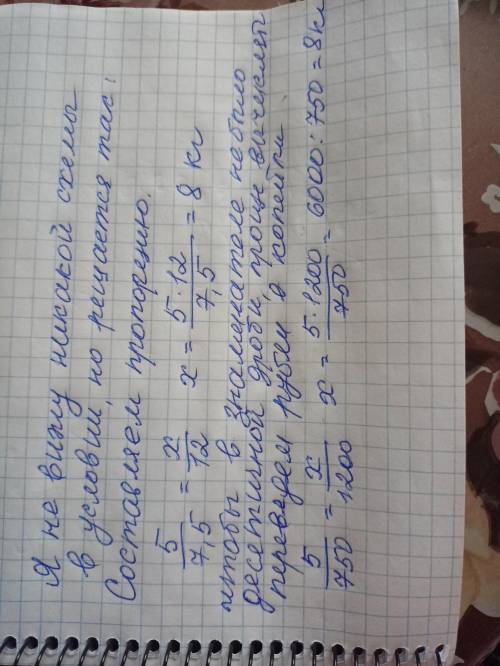 Я не вижу никакой схемы
в условии, но решается так:
Составляем пропорцию.
5/7,5 = x/12 x = 5·12/7,5 = 8 кг
чтобы в знаменателе не было
десетичной дроби, проще вычислить
переведем рубли в копейки
5/750 = x/1200 x = 5·1200/750 = 6000:750 = 8кг